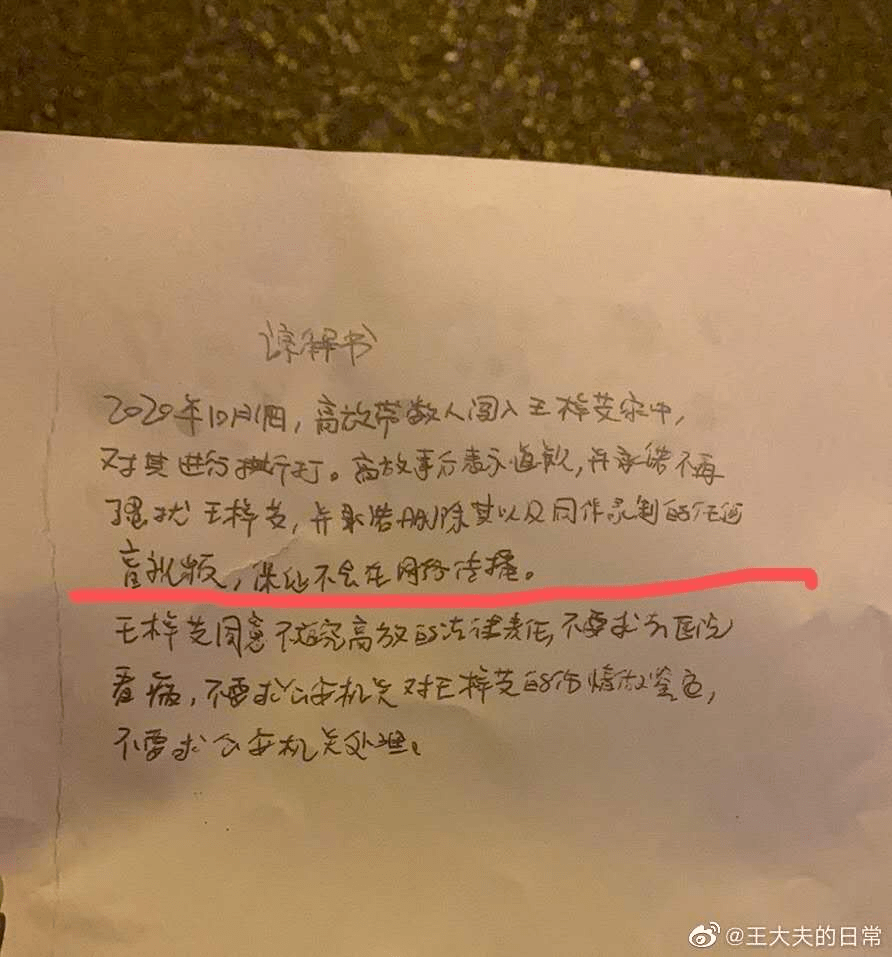 谅解书
2020年10月1日，高放带数人闯入王梓芠家中，
对其进行殴打。高放事后表示道歉，并承诺不再
骚扰王梓芠，并承诺删除其以及同伴录制的任何
音视频，保证不会在网络传播。
王梓芠同意不追究高放的法律责任，不要求去医院
看病，不要求公安机关对王梓芠的伤情做鉴定，
不要求公安机关处理。
@王大夫的日常